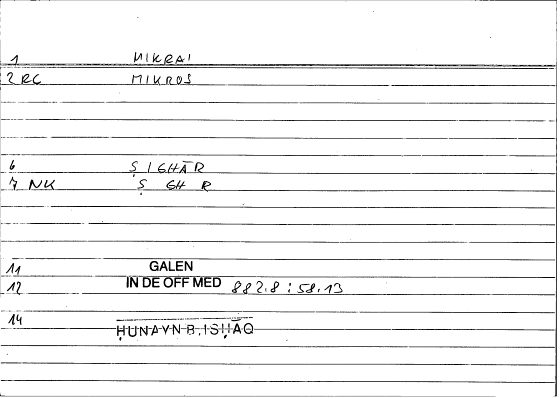 1 MIKRAI
2 RC MIKROS
6 ṢIGHĀR
7 NK Ṣ GH R
11 GALEN
12 IN DE OFF MED 882.8 : 58.13
14 ḤUNAYN B. ISḤĀQ